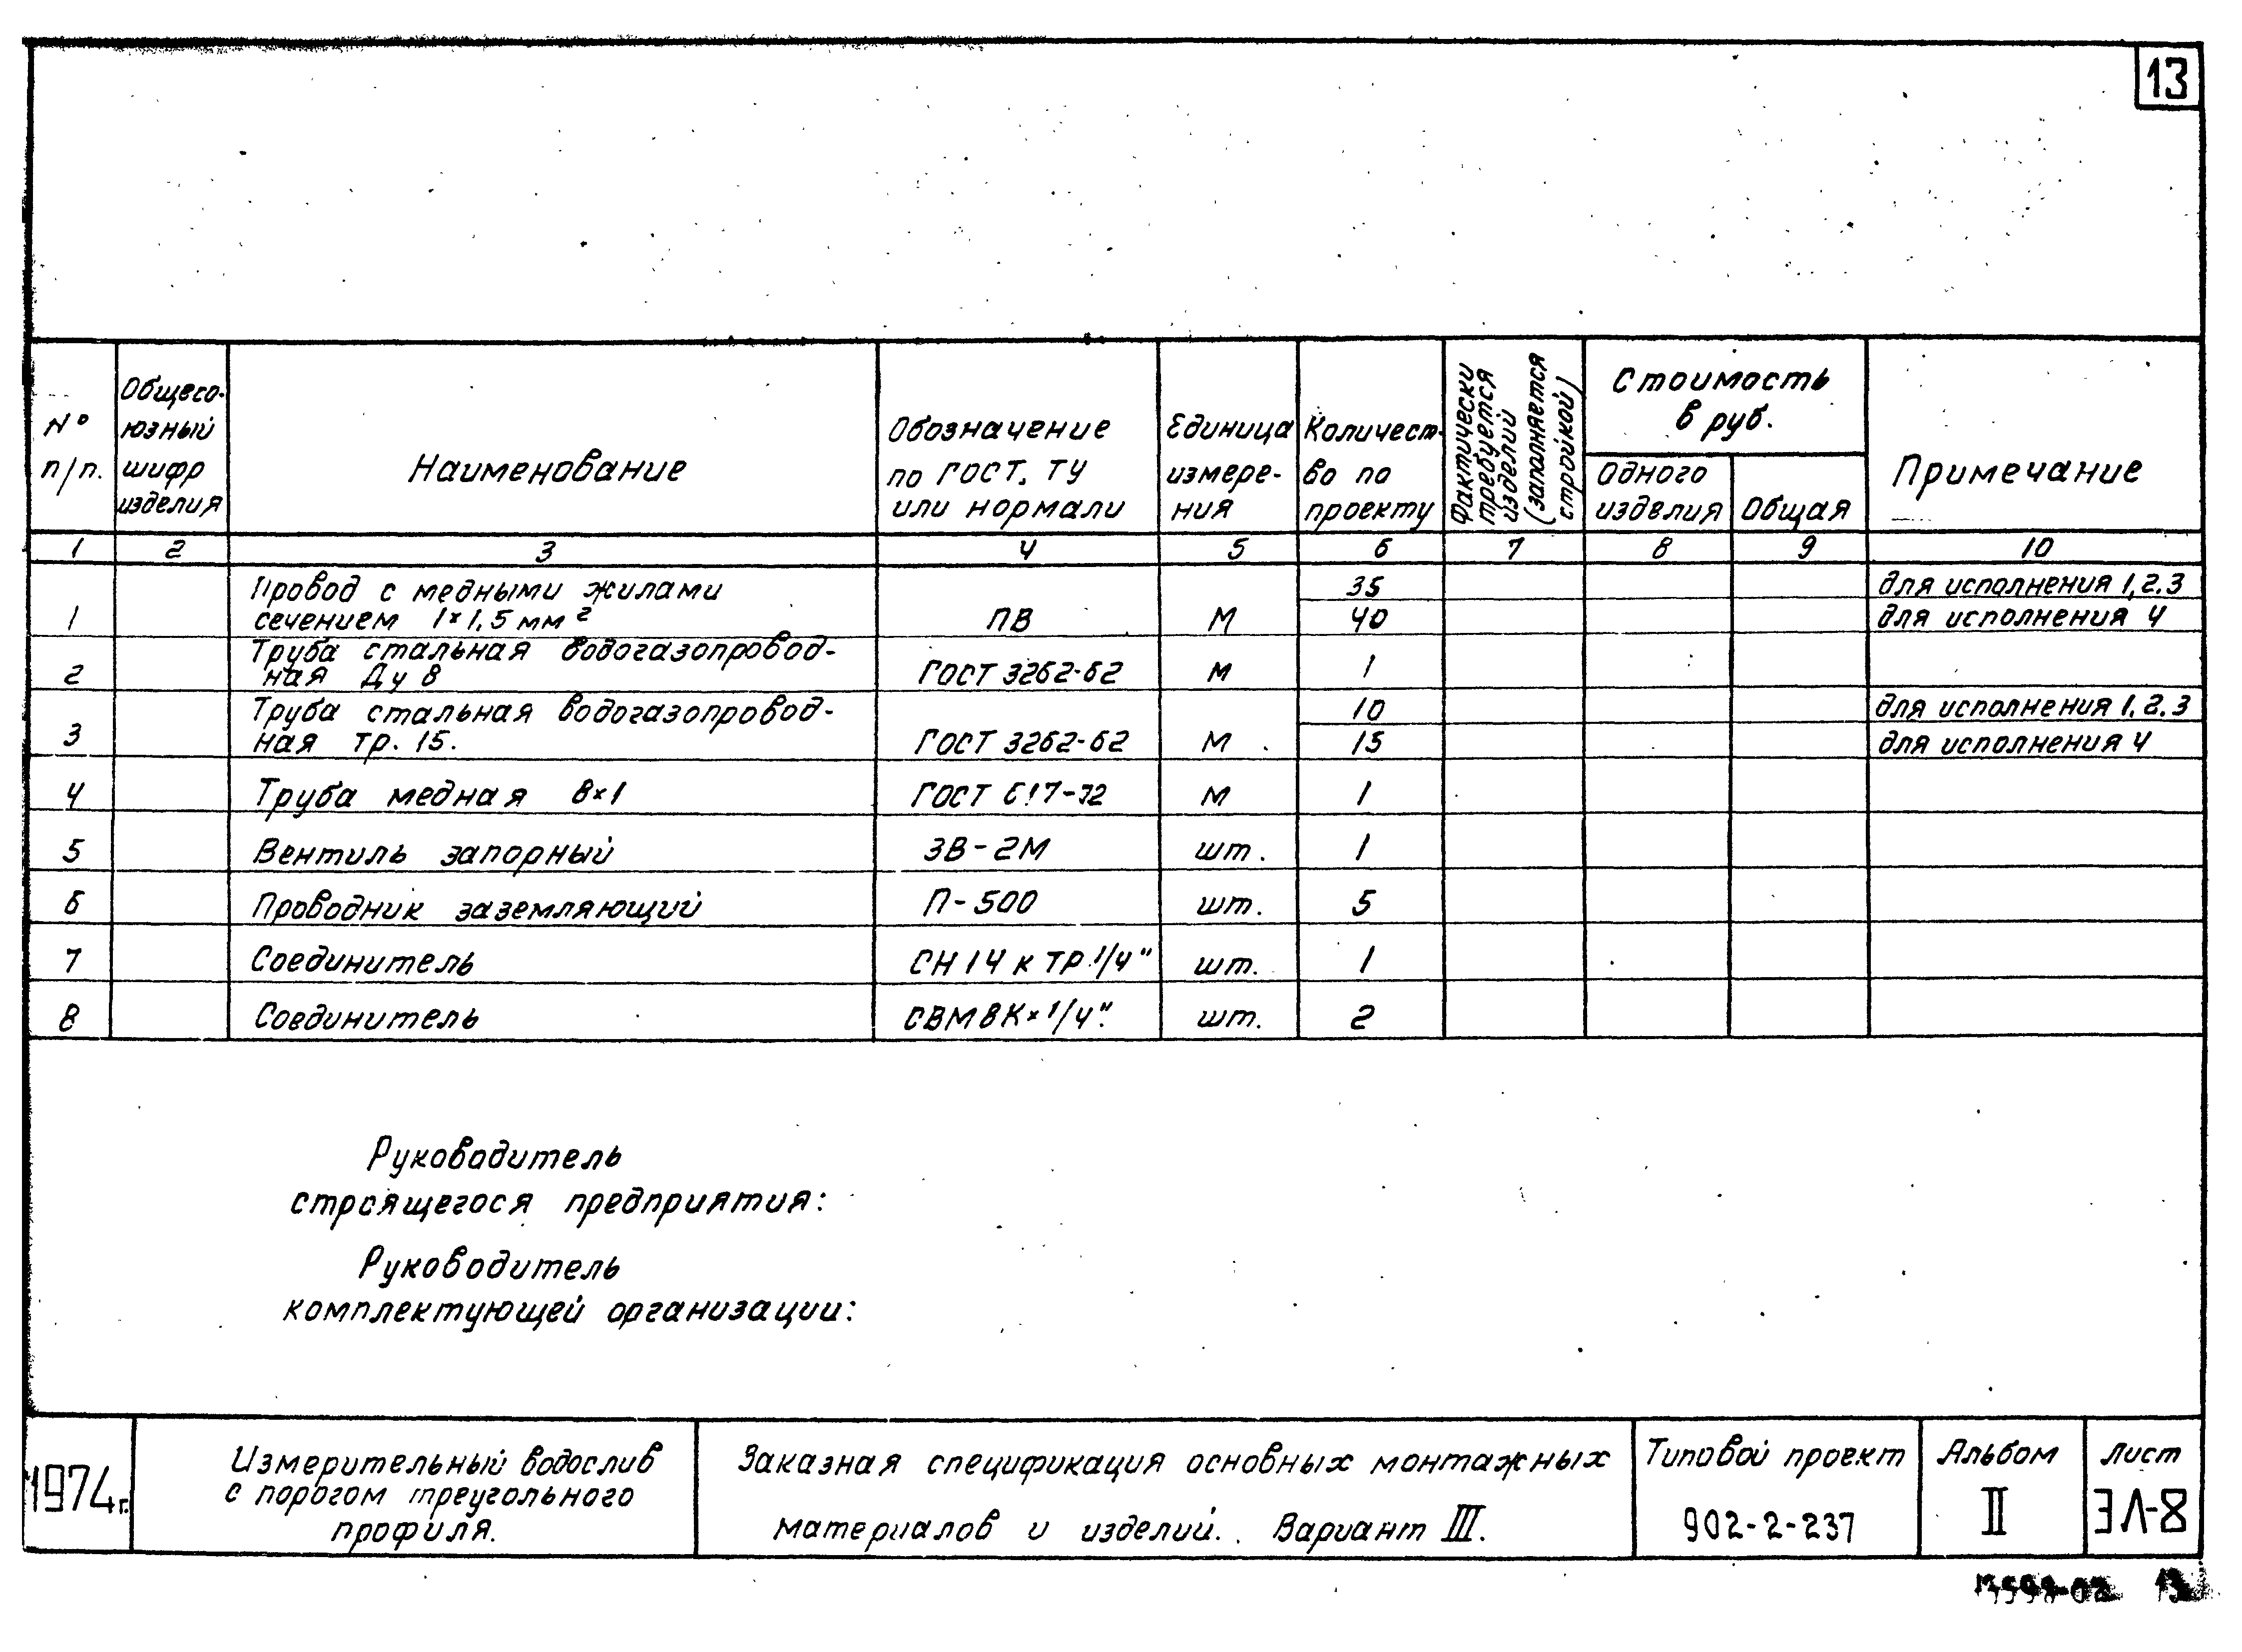 13
№ п/п.
Общесо-
юзный
шифр
изделия
Наименование
Обозначение
по ГОСТ, ТУ
или нормали
Единица
измере-
ния
Количест-
во по
проекту
Фактически
требуется
изделий
(заполняется
стройкой)
Стоимость
в руб.
Одного
изделия
Общая
Примечание
1 2 3 4 5 6 7 8 9 10
1 Провод с медными жилами сечением 1×1,5 мм² ПВ М 35 для исполнения 1,2.3
40 для исполнения 4
2 Труба стальная водогазопровод-
ная Ду 8 ГОСТ 3262-62 М 1
3 Труба стальная водогазопровод-
ная тр. 15. ГОСТ 3262-62 М 10 для исполнения 1.2.3
15 для исполнения 4
4 Труба медная 8×1 ГОСТ 617-72 М 1
5 Вентиль запорный ЗВ-2М шт. 1
6 Проводник заземляющий П-500 шт. 5
7 Соединитель СН 14 к тр 1/4" шт. 1
8 Соединитель СВМ8К×1/4". шт. 2
Руководитель
строящегося предприятия:
Руководитель
комплектующей организации:
1974г.
Измерительный водослив
с порогом треугольного
профиля.
Заказная спецификация основных монтажных
материалов и изделий. Вариант III.
Типовой проект
902-2-237
Альбом
II
Лист
ЭЛ-8